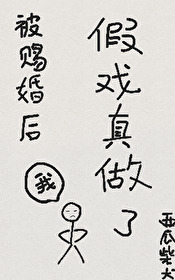 被赐婚后
我
假戏真做了
西瓜柴犬